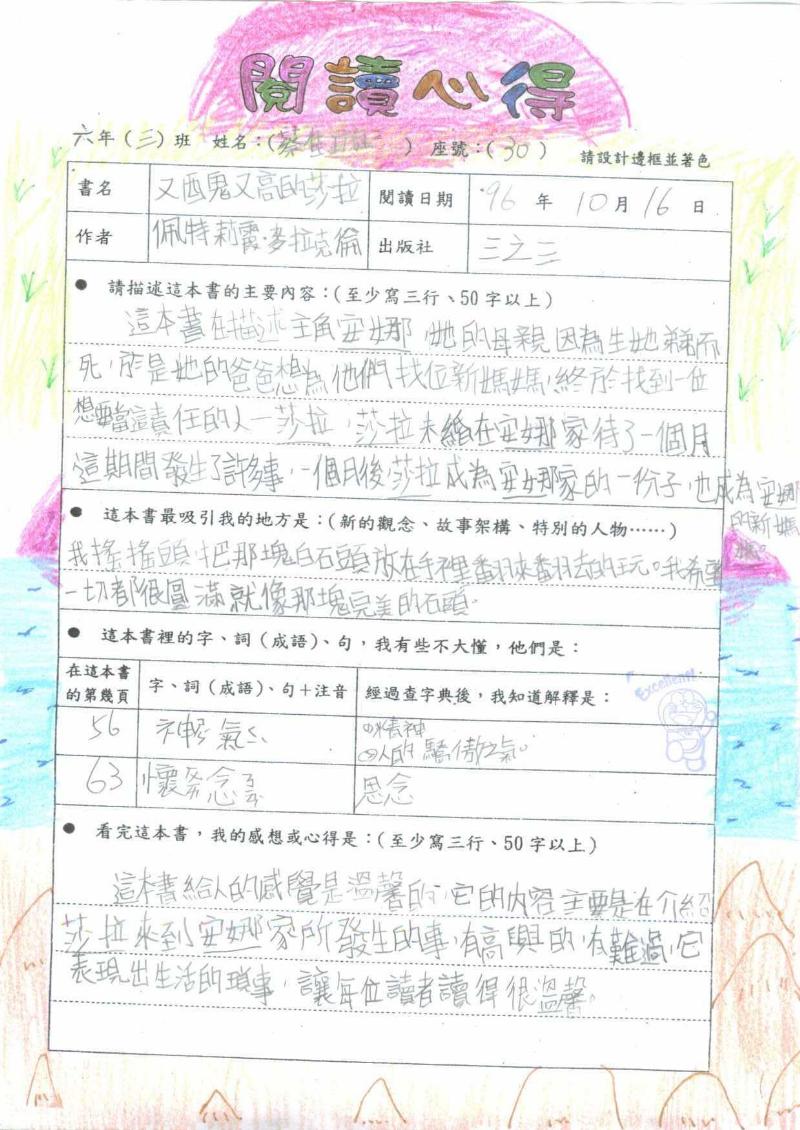 閱讀心得
六年(三)班 姓名:(蔡 ) 座號:(30) 請設計邊框並著色
書名 又醜又高的莎拉 閱讀日期 96 年 10 月 16 日
作者 佩特莉霞·多拉克倫 出版社 三之三
● 請描述這本書的主要內容:(至少寫三行、50字以上)
這本書在描述主角安娜,她的母親因為生她弟弟而
死,於是她的爸爸想為他們找位新媽媽,終於找到一位
想要當這責任的人—莎拉,莎拉來在安娜家待了一個月
這期間發生了許多事,一個月後,莎拉成為安娜家的一份子,也成為安娜
的新媽
媽。
● 這本書最吸引我的地方是:(新的觀念、故事架構、特別的人物……)
我搖搖頭把那塊白石頭放在手裡翻來翻去的玩。我希望
一切都很圓滿就像那塊完美的石頭。
● 這本書裡的字、詞(成語)、句,我有些不大懂,他們是:
在這本書的第幾頁 字、詞(成語)、句+注音 經過查字典後,我知道解釋是:
Excellent!
56 神氣 ①精神
②人的驕傲之氣。
63 懷念 思念
● 看完這本書,我的感想或心得是:(至少寫三行、50字以上)
這本書給人的感覺是溫馨的,它的內容主要是在介紹
莎拉來到安娜家所發生的事,有高興的,有難過,它
表現出生活的瑣事,讓每位讀者讀得很溫馨。